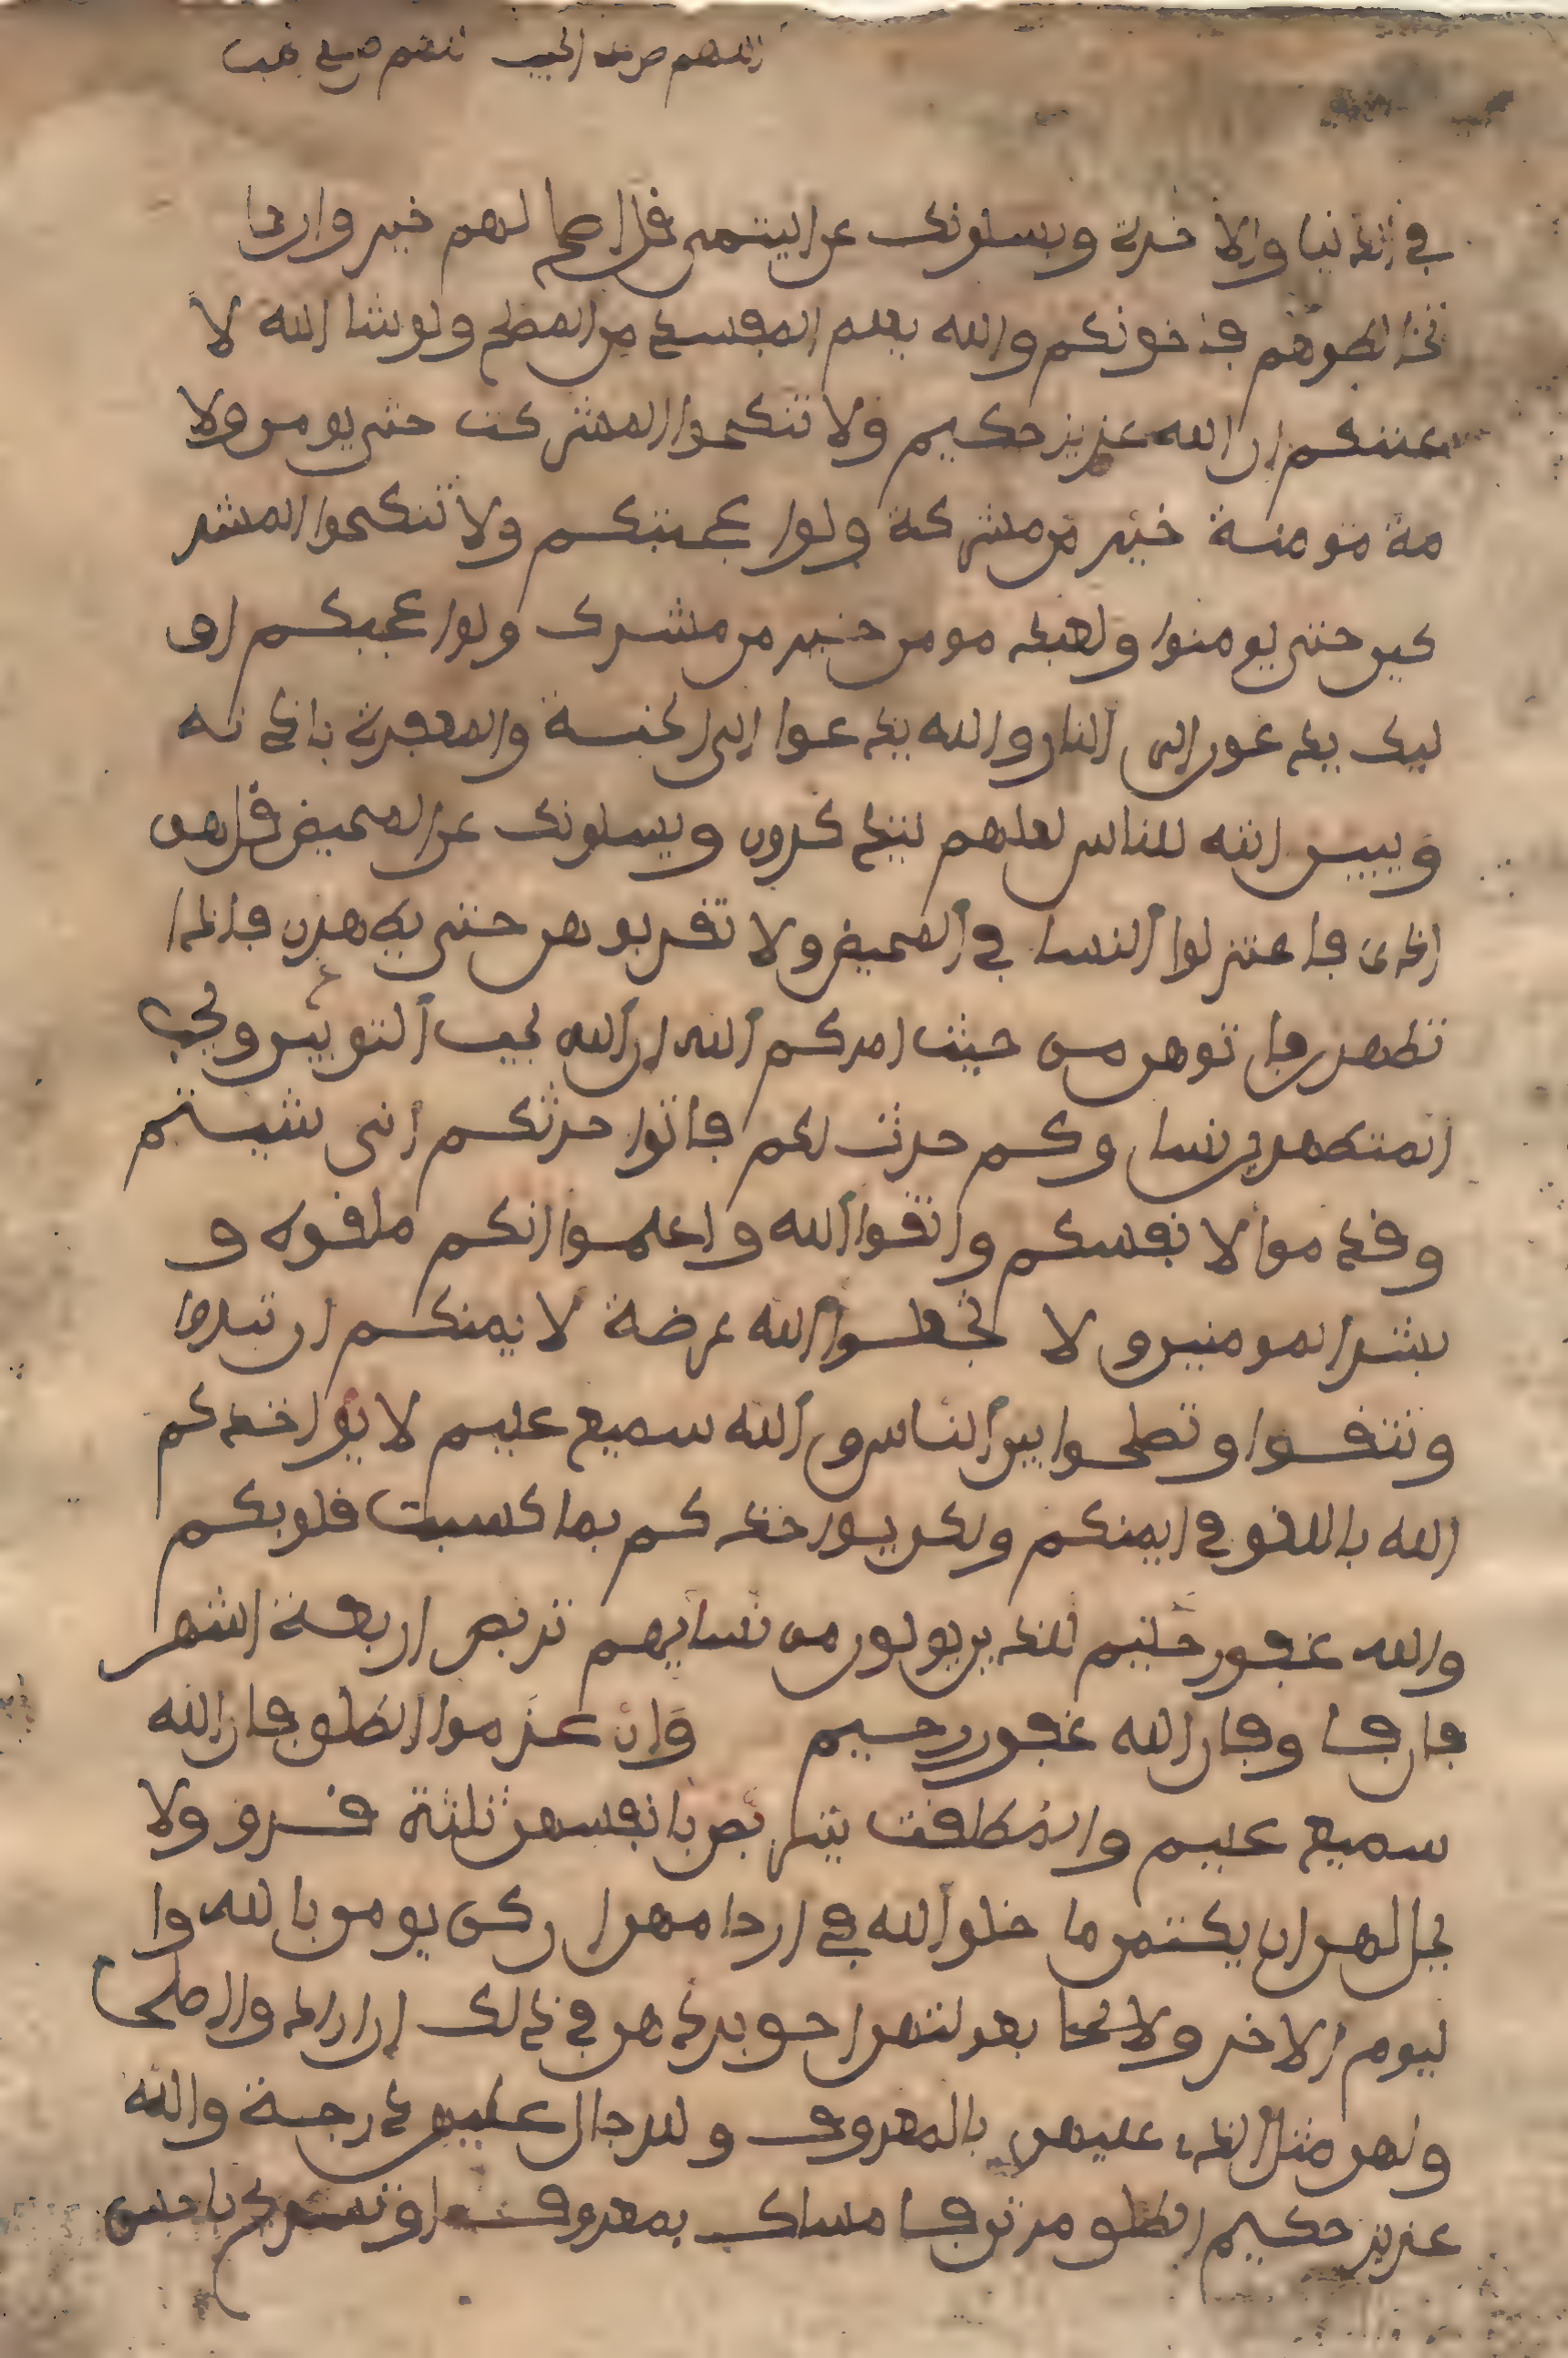 في الدنيا والاخرة ويسلونك عن اليتمى قل اصلح لهم خير وان
تخالطوهم فاخونكم والله يعلم المفسد من المصلح ولو شا الله لا
عنتكم ان الله عزيز حكيم ولا تنكحوا المشركت حتى يومن ولا
مة مومنة خير من مشركة ولو اعجبتكم ولا تنكحوا المشر
كين حتى يومنوا ولعبد مومن خير من مشرك ولو اعجبكم او
ليك يدعون الى النار والله يدعوا الى الجنة والمغفرة باذنه
ويبين ايته للناس لعلهم يتذكرون ويسلونك عن المحيض قل هو
اذى فاعتزلوا النسا في المحيض ولا تقربوهن حتى يطهرن فاذا
تطهرن فاتوهن من حيث امركم الله ان الله يحب التوبين ويحب
المتطهرين نساوكم حرث لكم فاتوا حرثكم انى شيتم
وقدموا لانفسكم واتقوا الله واعلموا انكم ملقوه و
بشر المومنين ولا تجعلوا الله عرضة لايمنكم ان تبروا
وتتقوا وتصلحوا بين الناس والله سميع عليم لا يواخذكم
الله باللغو في ايمنكم ولكن يواخذكم بما كسبت قلوبكم
والله غفور حليم للذين يولون من نسايهم تربص اربعة اشهر
فان فا وفان الله غفور رحيم وان عزموا الطلق فان الله
سميع عليم والمطلقت يتربصن بانفسهن ثلثة قرو ولا
يحل لهن ان يكتمن ما خلق الله في ارحامهن ان كن يومن بالله وا
ليوم الاخر وبعولتهن احق بردهن في ذلك ان ارادوا اصلحا
ولهن مثل الذي عليهن بالمعروف وللرجال عليهن درجة والله
عزيز حكيم الطلق مرتن فامساك بمعروف او تسريح باحسن